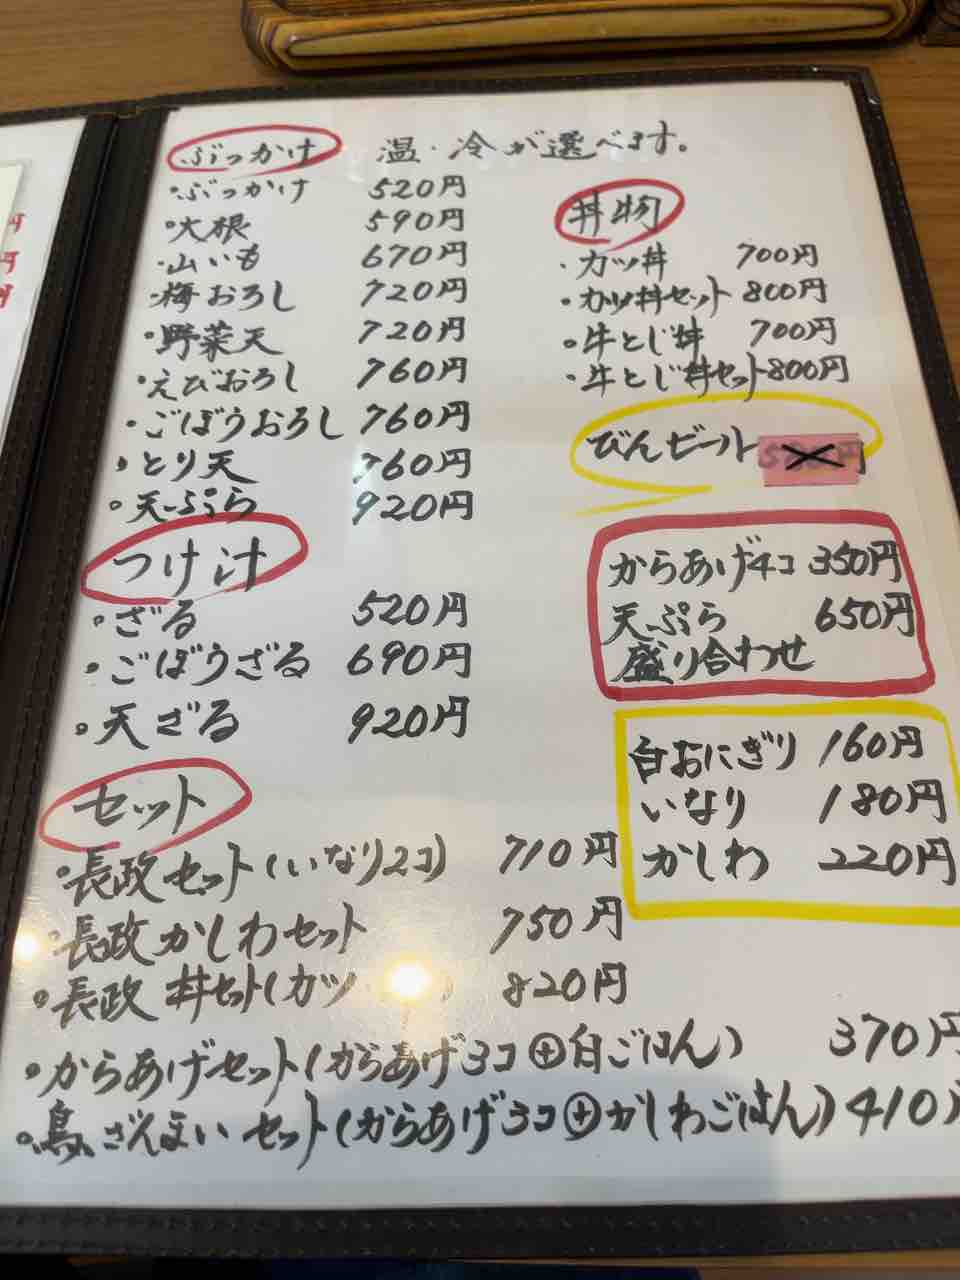 ぶっかけ 温・冷が選べます。
・ぶっかけ 520円
・大根 590円
・山いも 670円
・梅おろし 720円
・野菜天 720円
・えびおろし 760円
・ごぼうおろし 760円
・とり天 760円
・天ぷら 920円
つけ汁
・ざる 520円
・ごぼうざる 690円
・天ざる 920円
セット
・長政セット(いなり2コ) 710円
・長政かしわセット 750円
・長政丼セット(カツ 820円
・からあげセット(からあげ3コ⊕白ごはん) 370円
・鳥ざんまいセット(からあげ3コ⊕かしわごはん) 410
丼物
・カツ丼 700円
・カツ丼セット 800円
・牛とじ丼 700円
・牛とじ丼セット 800円
びんビール
からあげ4コ 350円
天ぷら 650円
盛り合わせ
白おにぎり 160円
いなり 180円
かしわ 220円